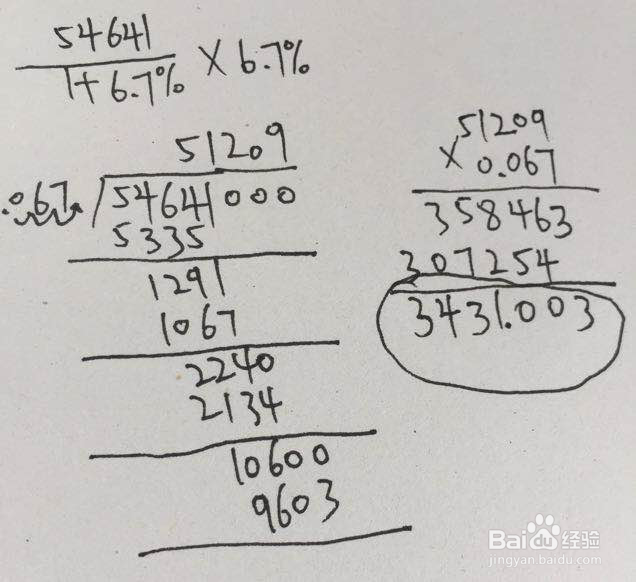 54641
1+6.7% × 6.7%
51209
.067 54641000
5335
1291
1067
2240
2134
10600
9603
51209
× 0.067
358463
307254
3431.003
Bai du 经验
jingyan.baidu.com